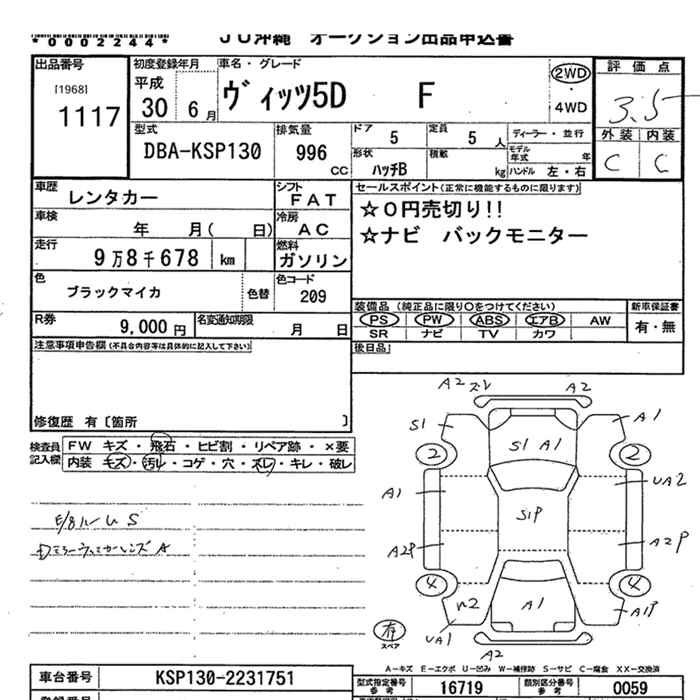 *0002244*
JU沖縄 オークション出品申込書
出品番号
[1968]
1117
初度登録年月
平成
30 6月
車名・グレード
ヴィッツ5D F
2WD
・
4WD
評価点
3.5
外装 内装
C C
型式
DBA-KSP130
排気量
996
CC
ドア
5
定員
5人
ディーラー・並行
形状
ハッチB
積載
kg
モデル年式 年
ハンドル 左・右
車歴
レンタカー
シフト
FAT
セールスポイント(正常に機能するものに限ります)
☆0円売切り!!
☆ナビ バックモニター
車検
年 月( 日)
冷房
AC
走行
9万8千678 km
燃料
ガソリン
色
ブラックマイカ
色替
色コード
209
装備品(純正品に限り○をつけてください)
PS PW ABS エアB AW
SR ナビ TV カワ
新車保証書
有・無
R券
9,000円
名変通知期限
月 日
後日品
注意事項申告欄(不具合内容等は具体的に記入して下さい)
修復歴 有〔箇所 〕
検査員記入欄
FW キズ・飛石・ヒビ割・リペア跡・×要
内装 キズ・汚レ・コゲ・穴・スレ・キレ・破レ
A2 ズレ
A2
S1
A1
S1 A1
2
2
A1
UA2
S1P
A2P
A2P
4
4
U2
A1
A1P
UA1
A2
有
スペア
F/Bバンパー S
A-キズ E-エクボ U-凹み W-補修跡 S-サビ C-腐食 XX-交換済
車台番号
KSP130-2231751
型式指定番号
参考
16719
類別区分番号
参考
0059